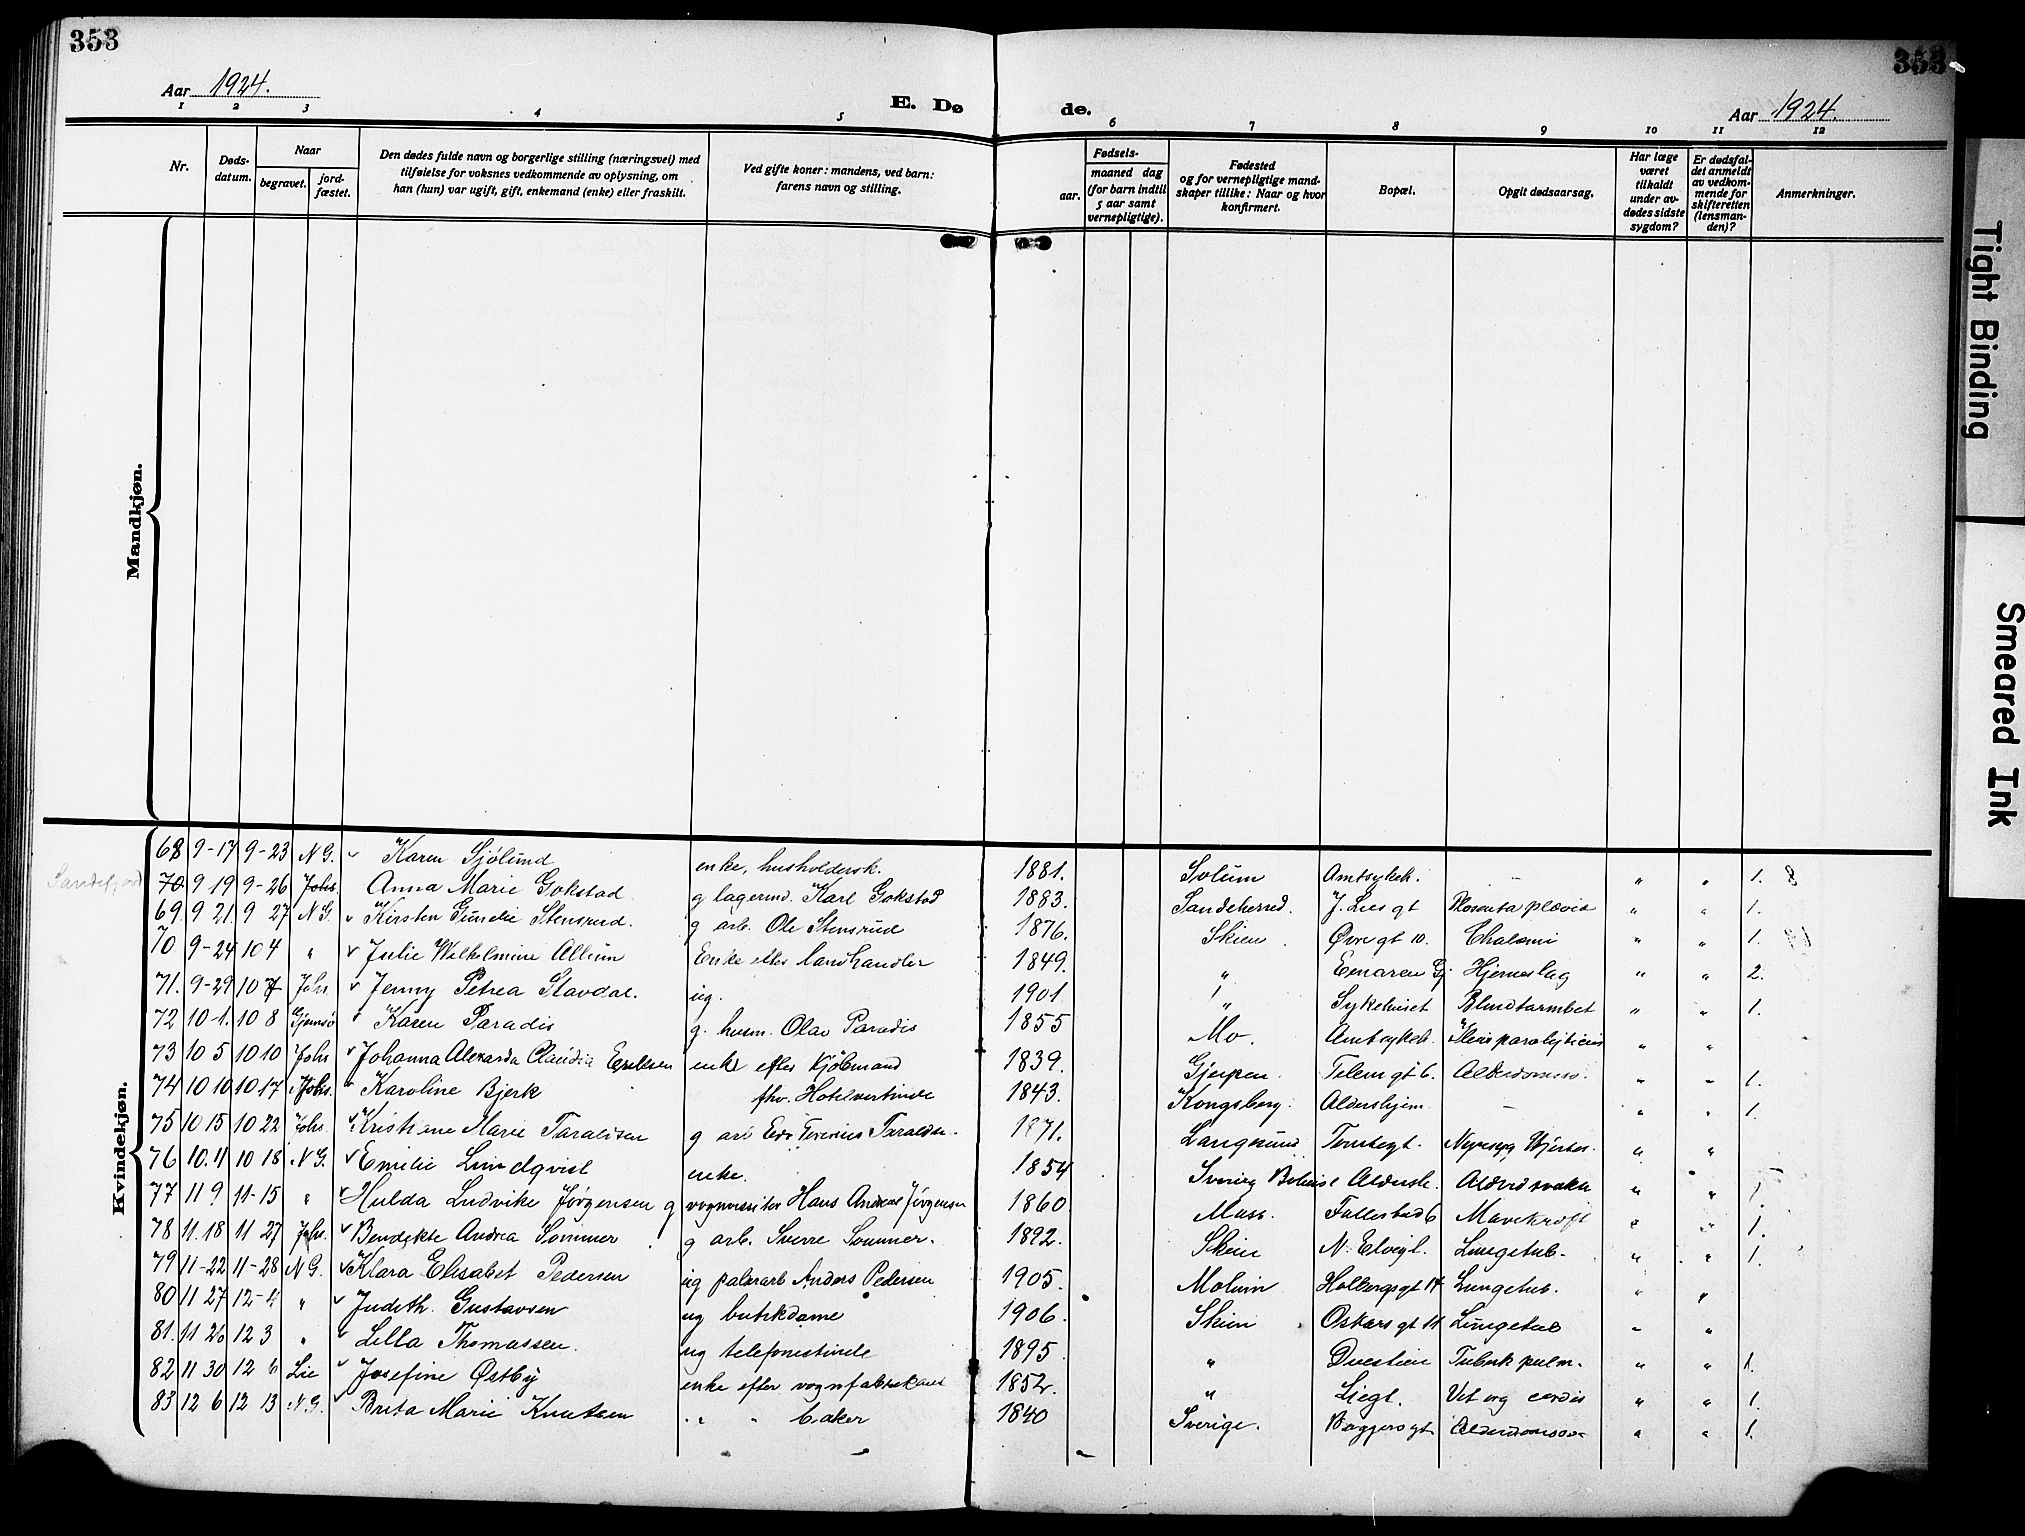 353
353
Aar 1924.
E. Dø
de.
Aar 1924.
1 2 3 4 5 6 7 8 9 10 11 12
Nr.
Døds-
datum.
Naar
begravet.
jord-
fæstet.
Den dødes fulde navn og borgerlige stilling (næringsvei) med
tilføielse for voksnes vedkommende av oplysning, om
han (hun) var ugift, gift, enkemand (enke) eller fraskilt.
Ved gifte koner: mandens, ved barn:
farens navn og stilling.
Fødsels-
aar.
maaned dag
(for barn indtil
5 aar samt
vernepligtige).
Fødested
og for vernepligtige mand-
skaper tillike: Naar og hvor
konfirmert.
Bopæl.
Opgit dødsaarsag.
Har læge
været
tilkaldt
under av-
dødes sidste
sygdom?
Er dødsfal-
det anmeldt
av vedkom-
mende for
skifteretten
(lensman-
den)?
Anmerkninger.
Mandkjøn.
Kvindekjøn.
68 9-17 9-23 N G. Karen Sjølund enke, husholdersk. 1881. Solum Amtsykeh. - " " 1. 8
Sandefjord 70 9 19 9-26 Johs. Anna Marie Gokstad g lagermd. Karl Gokstad 1883. Sandeherred. J. Lies gt Plasenta prævia " " 1.
69 9 21 9 27 N G. Kirsten Gunelie Stensrud. g arb. Ole Stensrud 1876. Skien Øvre gt 10. " " 1.
70 9-24 10 4 " Julie Wilhelmine Allum Enke efter landhandler 1849. " Hjerneslag " " 2.
71. 9-29 10 Johs. Jenny Petrea Stavdal. ug. 1901 " Sykehuset Blindtarmbet " " 1.
72 10-1. 10 8 Gjemsø Karen Paradis g. husm. Olav Paradis 1855 Mo. Amtsykeh. " "
73 10 5 10 10 Johs Johanna Claudia enke efter kjøbmand 1839. Gjerpen Telem gt 6. " " 1.
74 10 10 10 17 Johs. Karoline Bjerk fhv. Hotelvertinde 1843. Kongsberg. Aldershjem. - " " 1.
75 10 15 10 22 Johs. Kristiane Marie Taraldsen g arb 1871. Langesund " "
76 10. 11 10 18 N G. Emilie Lindqvist enke. 1854 " "
77 11 9 11-15 " Hulda Ludvike Jørgensen g Hans Andreas Jørgensen 1860 Moss. Mavekræft " " 1.
78 11.18 11 27 Johs. Bendikte Andrea Sommer g arb. Sverre Sommer. 1892. Skien Lungetub. " " 1.
79 11-22 11-28 N G. Klara Elisabet Pedersen ug Anders Pedersen 1905. Holbergsgt 14 Lungetub. " "
80 11 27 12-4 " Judith Gustavsen ug butikdame 1906. Skien Oskars gt Lungetub " "
81. 11 26 12 3 " Lilla Thomassen. ug telefonistinde 1895. " Tuberk pulm. " " 1.
82 11 30 12 6 Lie Josefine Østby enke efter vognfabrikant 1852. " Liegt. Vit org cordis " " 1.
83 12 6 12 13 N G. Brita Marie Knutsen " " baker 1840 Sverige. " " 1.
Tight Binding
Smeared Ink